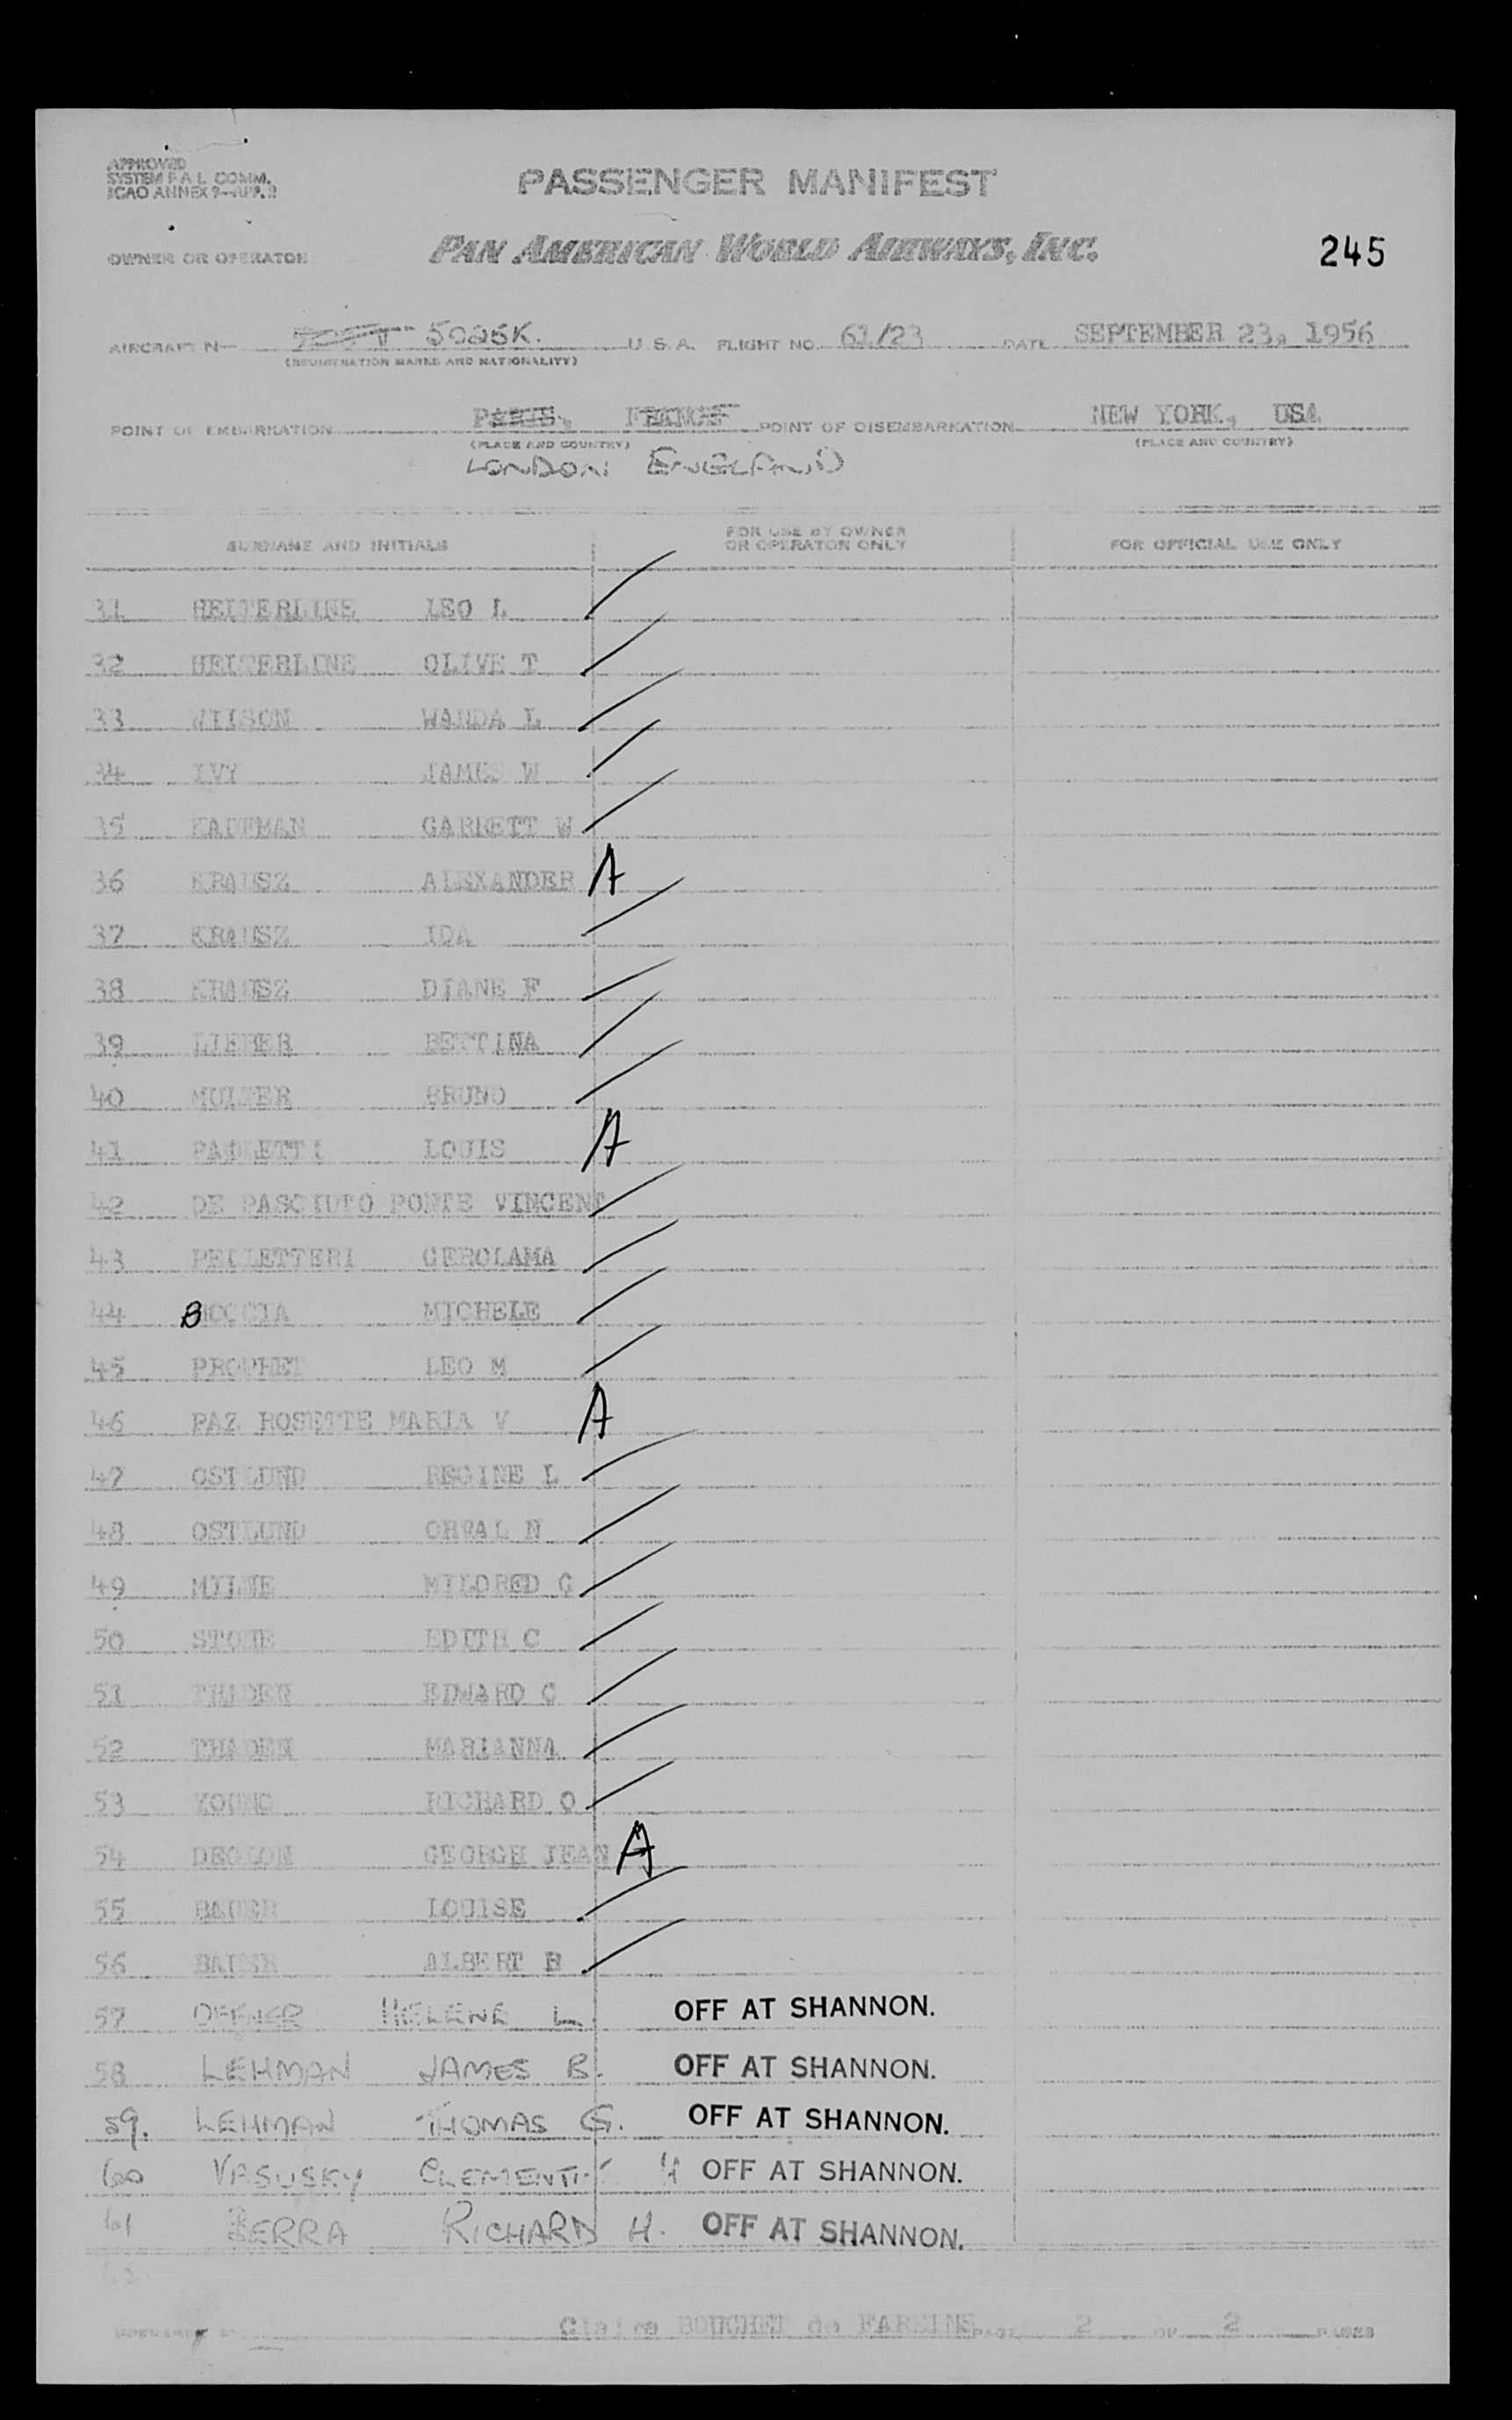 APPROVED
SYSTEM F A L COMM.
ICAO ANNEX 9—APP. 2
PASSENGER MANIFEST
OWNER OR OPERATOR
PAN AMERICAN WORLD AIRWAYS, INC.
245
AIRCRAFT N— 5025K. U. S. A. FLIGHT NO. 61/23 DATE SEPTEMBER 23, 1956
(REGISTRATION MARKS AND NATIONALITY)
POINT OF EMBARKATION PARIS, FRANCE POINT OF DISEMBARKATION NEW YORK, USA
(PLACE AND COUNTRY) (PLACE AND COUNTRY)
LONDON ENGLAND
SURNAME AND INITIALS FOR USE BY OWNER OR OPERATOR ONLY FOR OFFICIAL USE ONLY
31 HEITERLINE LEO L
32 HEITERLINE OLIVE T
33 WILSON WANDA L
34 IVY JAMES W
35 KAUFMAN GARRETT W
36 KRAUSZ ALEXANDER A
37 KRAUSZ IDA
38 KRAUSZ DIANE F
39 LIEBER BETTINA
40 BRUNO
41 PAOLETTI LOUIS A
42 DE PASCIUTO PONTE VINCENT
43 PELLETTERI GEROLAMA
44 BOCCIA MICHELE
45 PROPHET LEO M
46 PAZ ROSETTE MARIA V A
47 OSTLUND REGINE L
48 OSTLUND ORVAL N
49 MILNE MILDRED G
50 STONE EDITH C
51 THADEN EDWARD C
52 THADEN MARIANNA
53 YOUNG RICHARD O
54 GEORGE JEAN A
55 BAUER LOUISE
56 BAUER ALBERT B
57 HELENE L. OFF AT SHANNON.
58 LEHMAN JAMES B. OFF AT SHANNON.
59. LEHMAN THOMAS G. OFF AT SHANNON.
60 VASUSKY OFF AT SHANNON.
61 RICHARD H. OFF AT SHANNON.
Claire BOUCHET de FAREINS PAGE 2 OF 2 PAGES